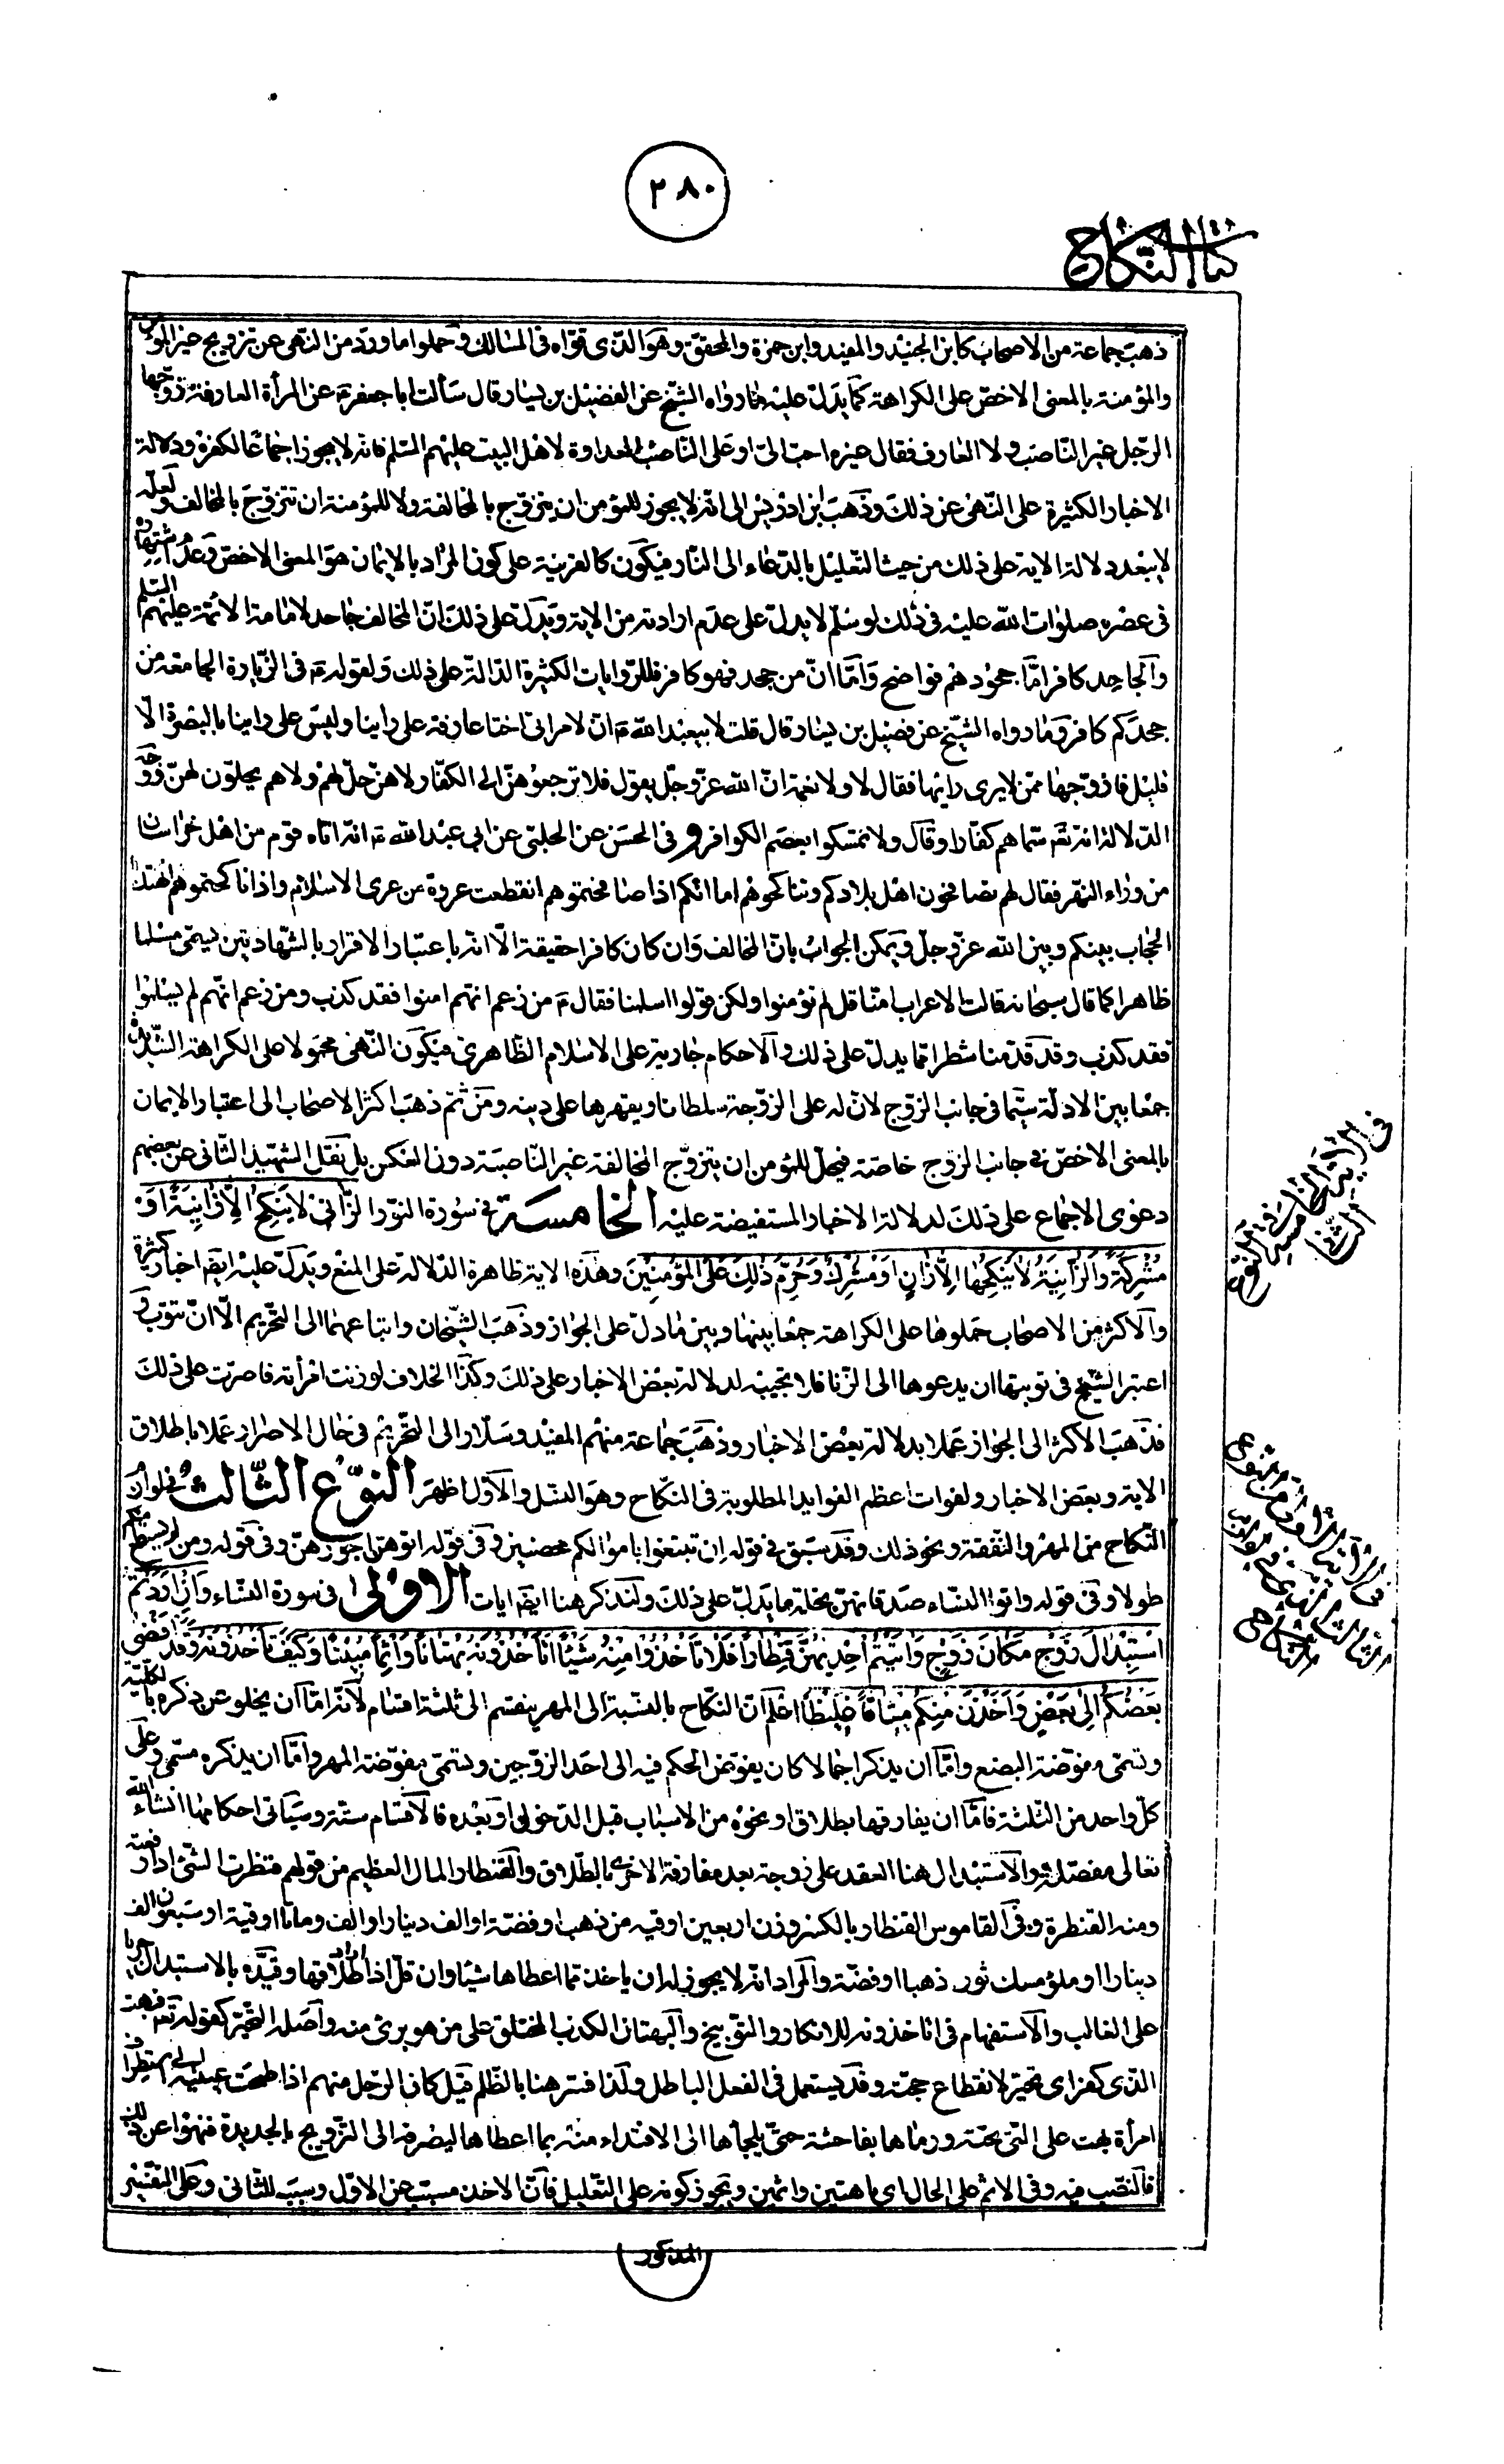 ٢٨٠
كتاب النكاح
ذهب جماعة من الاصحاب كابن الجنيد والمفيد وابن حمزة والمحقق وهو الذى قواه فى المسالك وحملوا ما ورد من النهى عن تزويج غير المؤمن
والمؤمنة بالمعنى الاخص على الكراهة كما يدل عليه ما رواه الشيخ عن الفضيل بن يسار قال سألت ابا جعفر ع عن المرأة العارفة زوجها
الرجل غير الناصب ولا العارف فقال غيره احب الى او على الناصب المعلن العداوة لاهل البيت عليهم السلم فانه لا يجوز اجماعا لكفره ودلالة
الاخبار الكثيرة على النهى عن ذلك وذهب ابن ادريس الى انه لا يجوز للمؤمن ان يتزوج بالمخالفة ولا للمؤمنة ان تتزوج بالمخالف ولعله
لا يبعد دلالة الاية على ذلك من حيث التعليل بالدعاء الى النار فيكون كالقرينة على كون المراد بالايمان هو المعنى الاخص وعدم اشتهاره
فى عصره صلوات الله عليه فى ذلك لو سلم لا يدل على عدم ارادته من الاية ويدل على ذلك ان المخالف جاحد لامامة الائمة عليهم السلم
والجاحد كافر اما جحودهم فواضح واما ان من جحد فهو كافر فللروايات الكثيرة الدالة على ذلك ولقوله ع فى الزيارة الجامعة من
جحدكم كافر وما رواه الشيخ عن فضيل بن يسار قال قلت لابيعبد الله ع ان لامراتى اختا عارفة على راينا وليس على راينا بالبصرة الا
قليل فازوجها ممن لا يرى رايها فقال لا ولا نعمة ان الله عز وجل يقول فلا ترجعوهن الى الكفار لا هن حل لهم ولا هم يحلون لهن ووجه
الدلالة انه ع سماهم كفارا وقال ولا تمسكوا بعصم الكوافر و فى الحسن عن الحلبى عن ابى عبد الله ع انه اتاه قوم من اهل خراسان
من وراء النهر فقال لهم تصافحون اهل بلادكم وتناكحوهم اما انكم اذا صافحتموهم انقطعت عروة من عرى الاسلام واذا ناكحتموهم انهتك
الحجاب بينكم وبين الله عز وجل ويمكن الجواب بان المخالف وان كان كافرا حقيقة الا انه باعتبار الاقرار بالشهادتين يسمى مسلما
ظاهرا كما قال سبحانه قالت الاعراب امنا قل لم تؤمنوا ولكن قولوا اسلمنا فقال ع من زعم انهم امنوا فقد كذب ومن زعم انهم لم يسلموا
فقد كذب وقد قدمنا شطرا مما يدل على ذلك والاحكام جارية على الاسلام الظاهرى فيكون النهى محمولا على الكراهة الشديدة
جمعا بين الادلة سيما فى جانب الزوج لان له على الزوجة سلطانا ويقهرها على دينه ومن ثم ذهب اكثر الاصحاب الى اعتبار الايمان
بالمعنى الاخص فى جانب الزوج خاصة فيحل للمؤمن ان يتزوج المخالفة غير الناصبة دون العكس بل نقل الشهيد الثانى عن بعضهم
دعوى الاجماع على ذلك لدلالة الاخبار المستفيضة عليه الخامسة فى سورة النور الزانى لا ينكح الا زانية او
مشركة والزانية لا ينكحها الا زان او مشرك وحرم ذلك على المؤمنين وهذه الاية ظاهرة الدلالة على المنع ويدل عليه ايضا اخبار كثيرة
والاكثر من الاصحاب حملوها على الكراهة جمعا بينها وبين ما دل على الجواز وذهب الشيخان واتباعهما الى التحريم الا ان تتوب و
اعتبر الشيخ فى توبتها ان يدعوها الى الزنا فلا تجيبه لدلالة بعض الاخبار على ذلك وكذا الخلاف لو زنت امرأته فاصرت على ذلك
فذهب الاكثر الى الجواز عملا بدلالة بعض الاخبار وذهب جماعة منهم المفيد وسلار الى التحريم فى حال الاصرار عملا باطلاق
الاية وبعض الاخبار ولفوات اعظم الفوايد المطلوبة فى النكاح وهو النسل والاول اظهر النوع الثالث فى لوازم
النكاح من المهر والنفقة ونحو ذلك وقد سبق فى قوله ان تبتغوا باموالكم محصنين وفى قوله اتوهن اجورهن وفى قوله ومن لم يستطع منكم
طولا وفى قوله واتوا النساء صدقاتهن نحلة ما يدل على ذلك ولنذكر هنا ايضا ايات الاولى فى سورة النساء وان اردتم
استبدال زوج مكان زوج واتيتم احديهن قنطارا فلا تاخذوا منه شيئا اتاخذونه بهتانا واثما مبينا وكيف تاخذونه وقد افضى
بعضكم الى بعض واخذن منكم ميثاقا غليظا اعلم ان النكاح بالنسبة الى المهر ينقسم الى ثلثة اقسام لانه اما ان يخلو عن ذكره بالكلية
وتسمى مفوضة البضع واما ان يذكر اجمالا كان يفوض الحكم فيه الى احد الزوجين وتسمى مفوضة المهر واما ان يذكره مسمى وعلى
كل واحد من الثلثة فاما ان يفارقها بطلاق او نحوه من الاسباب قبل الدخول او بعده فالاقسام ستة وسياتى احكامها انشاء الله
تعالى مفصلة والاستبدال هنا العقد على زوجة بعد مفارقة الاخرى بالطلاق والقنطار المال العظيم من قولهم قنطرت الشئ اذا رفعته
ومنه القنطرة وفى القاموس القنطار بالكسر وزن اربعين اوقية من ذهب او فضة او الف دينار او الف ومائتا اوقية او سبعون الف
دينار او ملؤ مسك ثور ذهبا او فضة والمراد انه لا يجوز له ان ياخذ مما اعطاها شيئا وان قل اذا اراد طلاقها وقيده بالاستبدال جريا
على الغالب والاستفهام فى اتاخذونه للانكار والتوبيخ والبهتان الكذب المختلق على من هو برئ منه واصله التحير كقوله تعالى فبهت
الذى كفر اى تحير لانقطاع حجته وقد يستعمل فى الفعل الباطل ولذا فسر هنا بالظلم قيل كان الرجل منهم اذا طمحت عينه الى استطراف
امرأة بهت على التى تحته ورماها بفاحشة حتى يلجأها الى الافتداء منه بما اعطاها ليصرفه الى التزويج بالجديدة فنهوا عن ذلك
فالنصب فيه وفى الاثم على الحال اى باهتين واثمين ويجوز كونه على التعليل فان الاخذ مسبب عن الاول وسبب للثانى وعلى التفسير
المذكور
فى الاية الخامسة من النوع
الثانى
النوع الثالث
النكاح